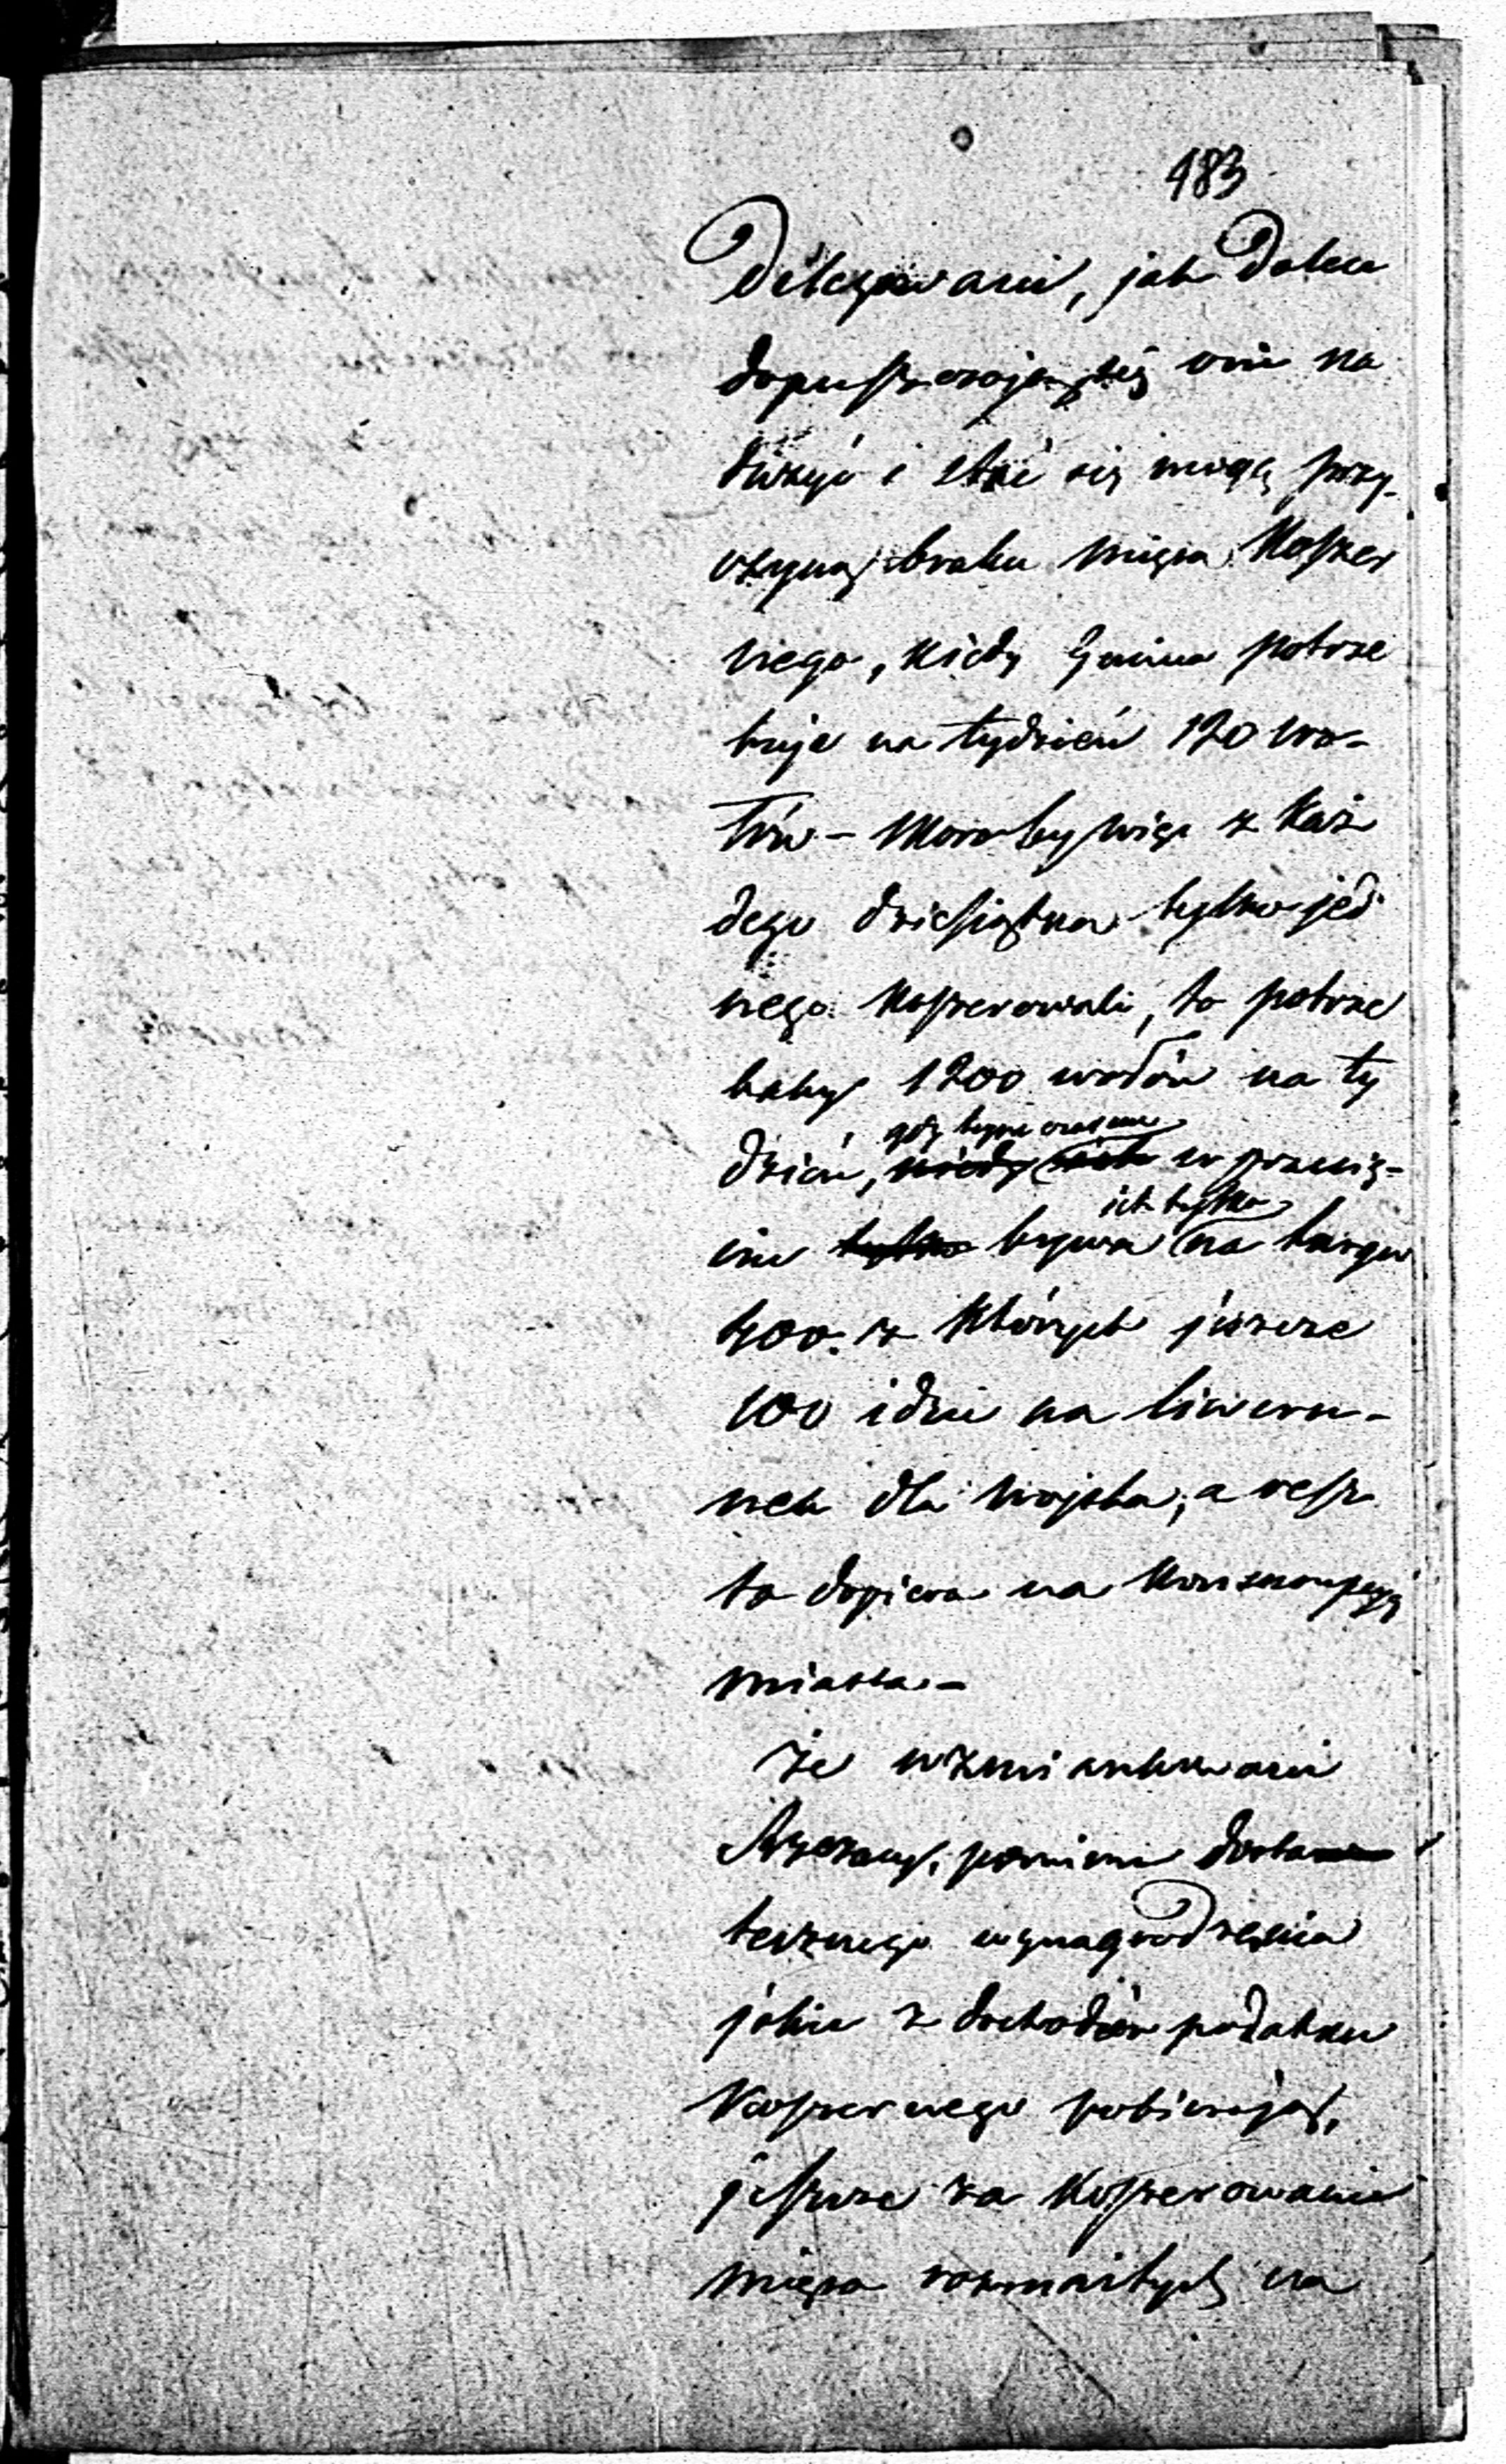 183
Delegowani, jak dalece
dopuszczają się oni na
dużyć i stać się mogą przy-
czyną braku mięsa Koszer
nego, kiedy Gmina potrze
buje na tydzień 120 wo-
łów – Morałby więc z każ
dego dziesiątka tylko jed
nego koszerowali, to potrze
baby 1200 wołów na ty
gdy tymczasem
dzień, kiedy w przecię-
ich tylko
ciu tylko bywa na targu
400. z których jeszcze
100 idzie na liweru-
nek dla wojska, a resz
ta dopiero na konsumpcyą
miasta –
że wzmiankowani
Rzezacy, pomimo dosta
tecznego wynagrodzenia
jakie z dochodów podatku
koszernego pobierają,
jeszcze za koszerowanie
mięsa rozmaitych na